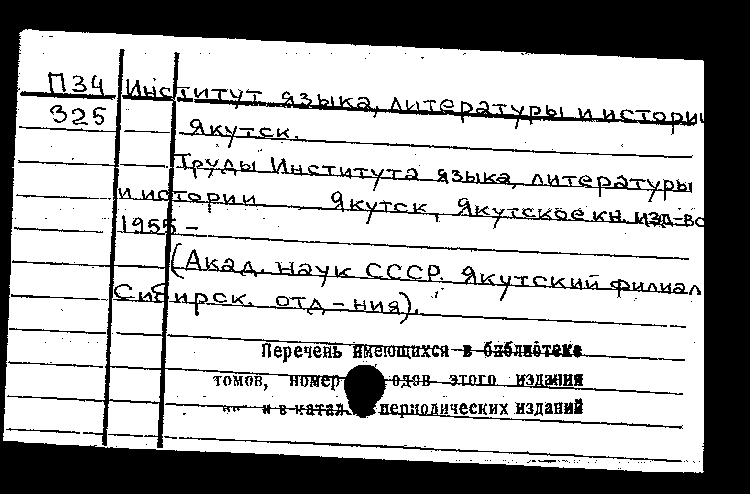 П34 Институт языка, литературы и истории
325 Якутск.
Труды Института языка, литературы
и истории Якутск, Якутское кн. изд-во
1955 -
(Акад. наук СССР. Якутский филиал
Сибирск. отд-ния).
Перечень имеющихся в библиотеке
томов, номер одов этого издания
и в катал периодических изданий